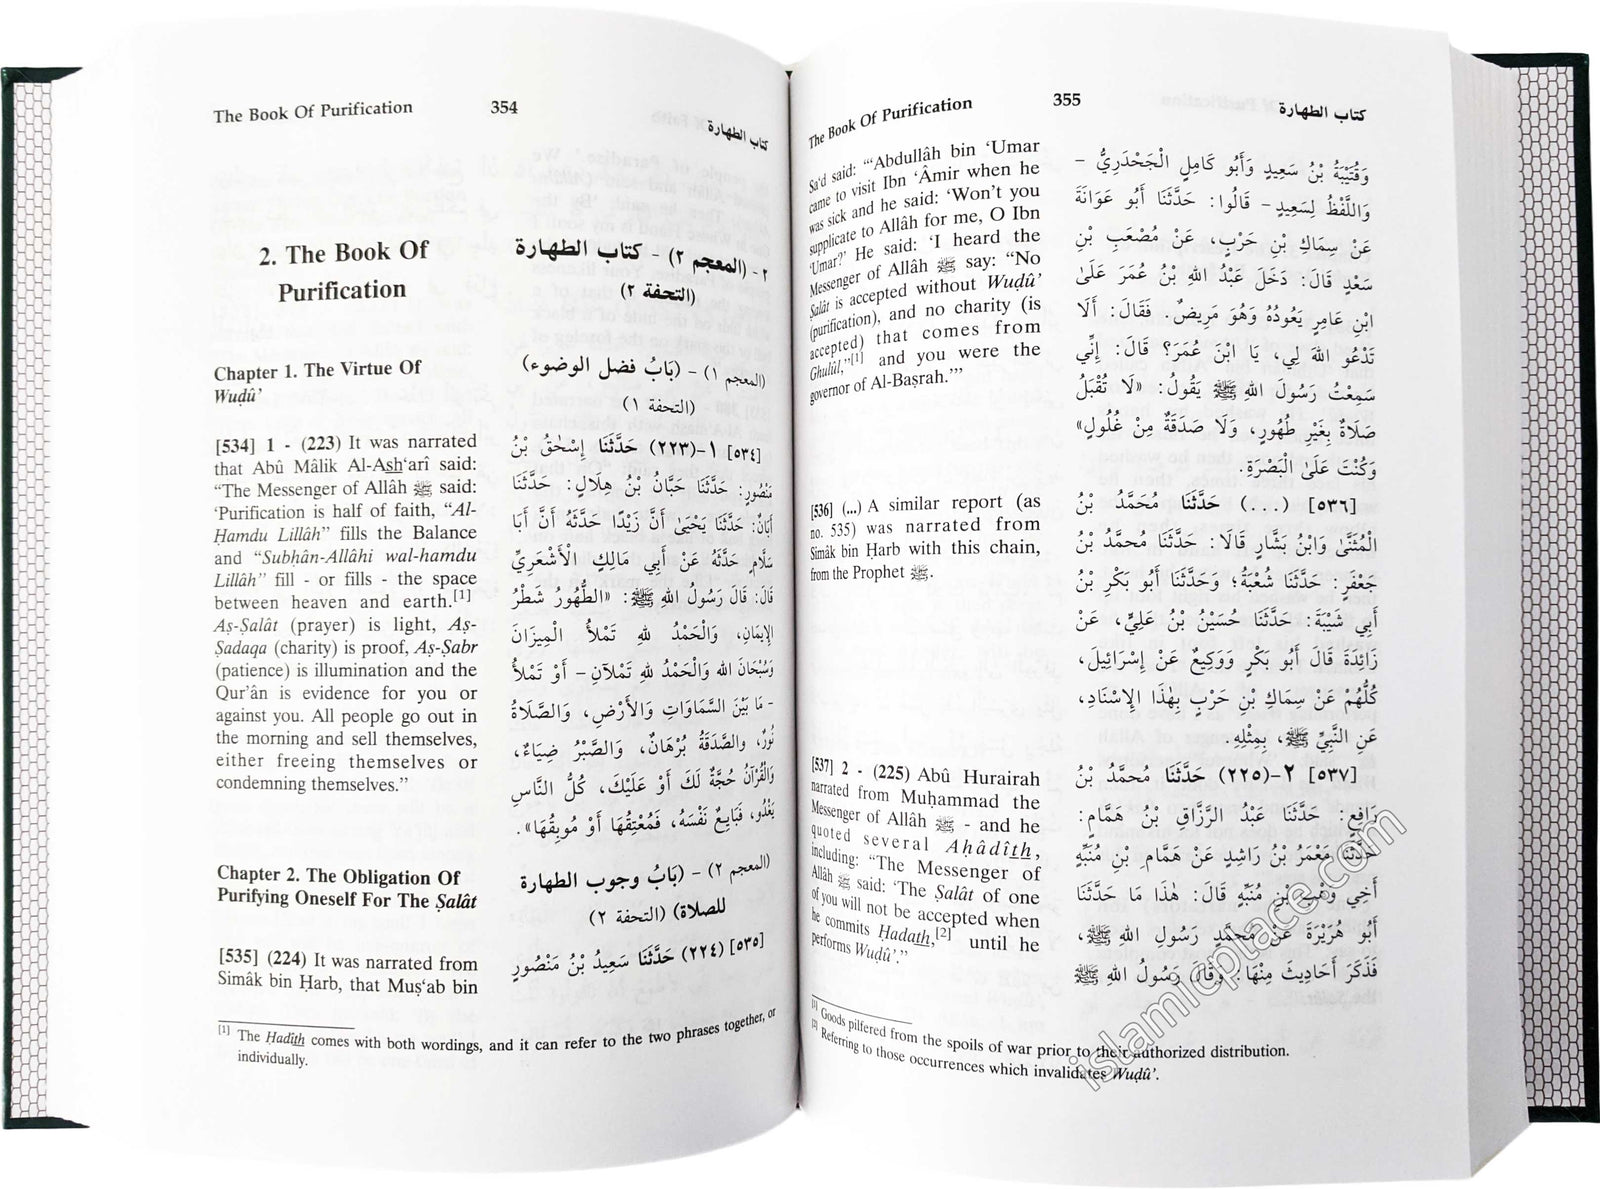 The Book Of Purification 354 كتاب الطهارة
2. The Book Of
Purification
Chapter 1. The Virtue Of
Wuḍû’
[534] 1 - (223) It was narrated
that Abû Mâlik Al-Ash‘arî said:
“The Messenger of Allâh ﷺ said:
‘Purification is half of faith, “Al-
Ḥamdu Lillâh” fills the Balance
and “Subhân-Allâhi wal-hamdu
Lillâh” fill - or fills - the space
between heaven and earth.[1]
Aṣ-Ṣalât (prayer) is light, Aṣ-
Ṣadaqa (charity) is proof, Aṣ-Ṣabr
(patience) is illumination and the
Qur’ân is evidence for you or
against you. All people go out in
the morning and sell themselves,
either freeing themselves or
condemning themselves.”
Chapter 2. The Obligation Of
Purifying Oneself For The Ṣalât
[535] (224) It was narrated from
Simâk bin Ḥarb, that Muṣ‘ab bin
٢ - (المعجم ٢) - كتاب الطهارة
(التحفة ٢)
(المعجم ١) - (بَابُ فضل الوضوء)
(التحفة ١)
[٥٣٤] ١-(٢٢٣) حَدَّثَنَا إِسْحٰقُ بْنُ
مَنْصُورٍ: حَدَّثَنَا حَبَّانُ بْنُ هِلَالٍ: حَدَّثَنَا
أَبَانٌ: حَدَّثَنَا يَحْيَىٰ أَنَّ زَيْدًا حَدَّثَهُ أَنَّ أَبَا
سَلَّامٍ حَدَّثَهُ عَنْ أَبِي مَالِكٍ الْأَشْعَرِيِّ
قَالَ: قَالَ رَسُولُ اللهِ ﷺ: «الطُّهُورُ شَطْرُ
الْإِيمَانِ، وَالْحَمْدُ لِلهِ تَمْلَأُ الْمِيزَانَ
وَسُبْحَانَ اللهِ وَالْحَمْدُ لِلهِ تَمْلَآنِ - أَوْ تَمْلَأُ
- مَا بَيْنَ السَّمَاوَاتِ وَالْأَرْضِ، وَالصَّلَاةُ
نُورٌ، وَالصَّدَقَةُ بُرْهَانٌ، وَالصَّبْرُ ضِيَاءٌ،
وَالْقُرْآنُ حُجَّةٌ لَكَ أَوْ عَلَيْكَ، كُلُّ النَّاسِ
يَغْدُو، فَبَايِعٌ نَفْسَهُ، فَمُعْتِقُهَا أَوْ مُوبِقُهَا».
(المعجم ٢) - (بَابُ وجوب الطهارة
للصلاة) (التحفة ٢)
[٥٣٥] (٢٢٤) حَدَّثَنَا سَعِيدُ بْنُ مَنْصُورٍ
[1] The Ḥadîth comes with both wordings, and it can refer to the two phrases together, or
individually.
The Book Of Purification 355 كتاب الطهارة
Sa‘d said: “‘Abdullâh bin ‘Umar
came to visit Ibn ‘Âmir when he
was sick and he said: ‘Won’t you
supplicate to Allâh for me, O Ibn
‘Umar?’ He said: ‘I heard the
Messenger of Allâh ﷺ say: “No
Ṣalât is accepted without Wuḍû’
(purification), and no charity (is
accepted) that comes from
Ghulûl,”[1] and you were the
governor of Al-Baṣrah.’”
[536] (...) A similar report (as
no. 535) was narrated from
Simâk bin Ḥarb with this chain,
from the Prophet ﷺ.
[537] 2 - (225) Abû Hurairah
narrated from Muḥammad the
Messenger of Allâh ﷺ - and he
quoted several Aḥâdîth,
including: “The Messenger of
Allâh ﷺ said: ‘The Ṣalât of one
of you will not be accepted when
he commits Ḥadath,[2] until he
performs Wuḍû’.”
وَقُتَيْبَةُ بْنُ سَعِيدٍ وَأَبُو كَامِلٍ الْجَحْدَرِيُّ -
وَاللَّفْظُ لِسَعِيدٍ - قَالُوا: حَدَّثَنَا أَبُو عَوَانَةَ
عَنْ سِمَاكِ بْنِ حَرْبٍ، عَنْ مُصْعَبِ بْنِ
سَعْدٍ قَالَ: دَخَلَ عَبْدُ اللهِ بْنُ عُمَرَ عَلَى
ابْنِ عَامِرٍ يَعُودُهُ وَهُوَ مَرِيضٌ. فَقَالَ: أَلَا
تَدْعُو اللهَ لِي، يَا ابْنَ عُمَرَ؟ قَالَ: إِنِّي
سَمِعْتُ رَسُولَ اللهِ ﷺ يَقُولُ: «لَا تُقْبَلُ
صَلَاةٌ بِغَيْرِ طُهُورٍ، وَلَا صَدَقَةٌ مِنْ غُلُولٍ»
وَكُنْتَ عَلَى الْبَصْرَةِ.
[٥٣٦] (...) حَدَّثَنَا مُحَمَّدُ بْنُ
الْمُثَنَّىٰ وَابْنُ بَشَّارٍ قَالَا: حَدَّثَنَا مُحَمَّدُ بْنُ
جَعْفَرٍ: حَدَّثَنَا شُعْبَةُ؛ وَحَدَّثَنَا أَبُو بَكْرِ بْنُ
أَبِي شَيْبَةَ: حَدَّثَنَا حُسَيْنُ بْنُ عَلِيٍّ، عَنْ
زَائِدَةَ قَالَ أَبُو بَكْرٍ وَوَكِيعٌ عَنْ إِسْرَائِيلَ،
كُلُّهُمْ عَنْ سِمَاكِ بْنِ حَرْبٍ بِهٰذَا الْإِسْنَادِ،
عَنِ النَّبِيِّ ﷺ، بِمِثْلِهِ.
[٥٣٧] ٢-(٢٢٥) حَدَّثَنَا مُحَمَّدُ بْنُ
رَافِعٍ: حَدَّثَنَا عَبْدُ الرَّزَّاقِ بْنُ هَمَّامٍ:
حَدَّثَنَا مَعْمَرُ بْنُ رَاشِدٍ عَنْ هَمَّامِ بْنِ مُنَبِّهٍ
أَخِي وَهْبِ بْنِ مُنَبِّهٍ قَالَ: هٰذَا مَا حَدَّثَنَا
أَبُو هُرَيْرَةَ عَنْ مُحَمَّدٍ رَسُولِ اللهِ ﷺ،
فَذَكَرَ أَحَادِيثَ مِنْهَا: وَقَالَ رَسُولُ اللهِ ﷺ
[1] Goods pilfered from the spoils of war prior to their authorized distribution.
[2] Referring to those occurrences which invalidates Wuḍû’.
islamicplace.com